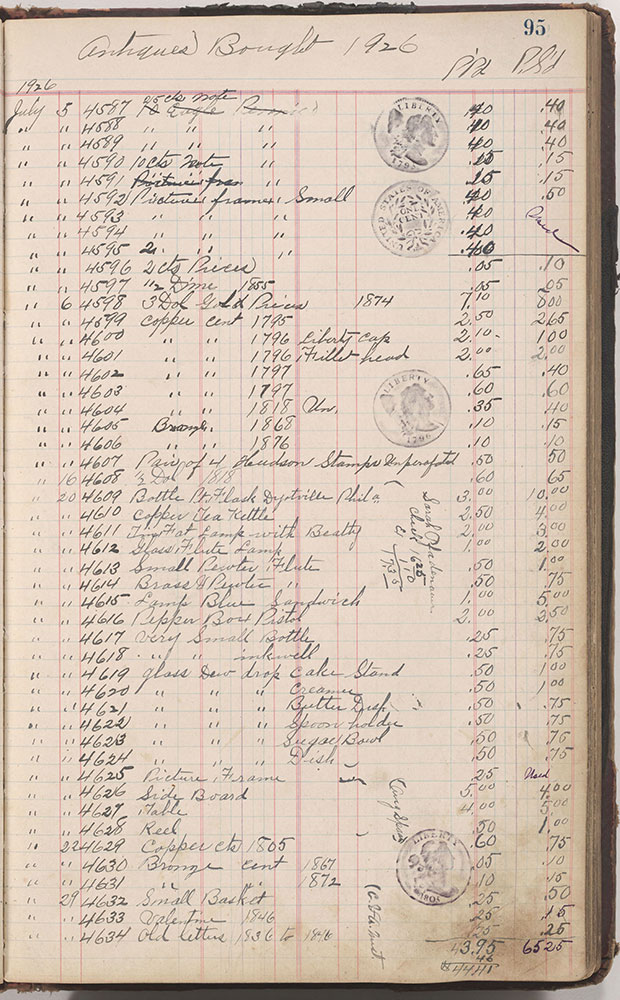 95
Antiques Bought 1926
P'd P.Sd
1926
July 5 4587 10 cts Note .40 .40
" " 4588 " " " .40 .40
" " 4589 " " " .40 .40
" " 4590 10cts Note " .15 .15
" " 4591 .15 .15
" " 4592 Picture frames Small .50
" " 4593 " " " Used
" " 4594 " " "
" " 4595 2 " "
" " 4596 2 cts Pieces .05 .10
" " 4597 1/2 Dme 1855 .05 .05
" 6 4598 3 Dol Gold Pieces 1874 7.10
" " 4599 Copper Cent 1795 2.50 2.65
" " 4600 " " 1796 Liberty Cap 2.10 1.00
" " 4601 " " 1796 Fillet head 2.00 2.00
" " 4602 " " 1797 .65 .40
" " 4603 " " 1797 .60 .60
" " 4604 " " 1818 Un. .35 .40
" " 4605 Bronze " 1868 .10 .15
" " 4606 " " 1876 .10 .10
" " 4607 Pair of 4 Hudson Stamps Inperfated .50 50
" 16 4608 1/2 Dol 1818 .60 65
" 20 4609 Bottle Pt. Flask Dyotville Phila 3.00 10.00
" " 4610 Copper Tea Kettle 2.50 4.00
" " 4611 Fat Lamp with Beatty 2.00 3.00
" " 4612 Glass Flute Lamp 1.00 2.00
" " 4613 Small Pewter Flute .50 1.00
" " 4614 Brass & Pewter " .50 .75
" " 4615 Lamp Blue Sandwich 1.00 5.00
" " 4616 Pepper Box Pistol 2.00 3.50
" " 4617 Very Small Bottle .25 .75
" " 4618 " " inkwell .25 .75
" " 4619 glass Dew drop Cake Stand .50 1.00
" " 4620 " " " Creamer .50 1.00
" " 4621 " " " Butter Dish .50 .75
" " 4622 " " " Spoon holder .50 .75
" " 4623 " " " Sugar Bowl .50 .75
" " 4624 " " " Dish .50 .75
" " 4625 Picture Frame .25 Used
" " 4626 Side Board 3.00 4.00
" " 4627 Table 4.00 5.00
" " 4628 Reel .50 1.00
" 22 4629 Copper cts 1805 .60 .75
" " 4630 Bronze Cent 1867 .05 .10
" " 4631 " " 1872 .10 .15
" 29 4632 Small Basket .25 .50
" " 4633 Valentine 1846 .25 .15
" " 4634 Old letters 1836 to 1846 .25 .25
43.95 65.25
46
$44.41
LIBERTY
1795
UNITED STATES OF AMERICA
ONE CENT
LIBERTY
1796
LIBERTY
1805
Sarah
6.25
1.10
7.35